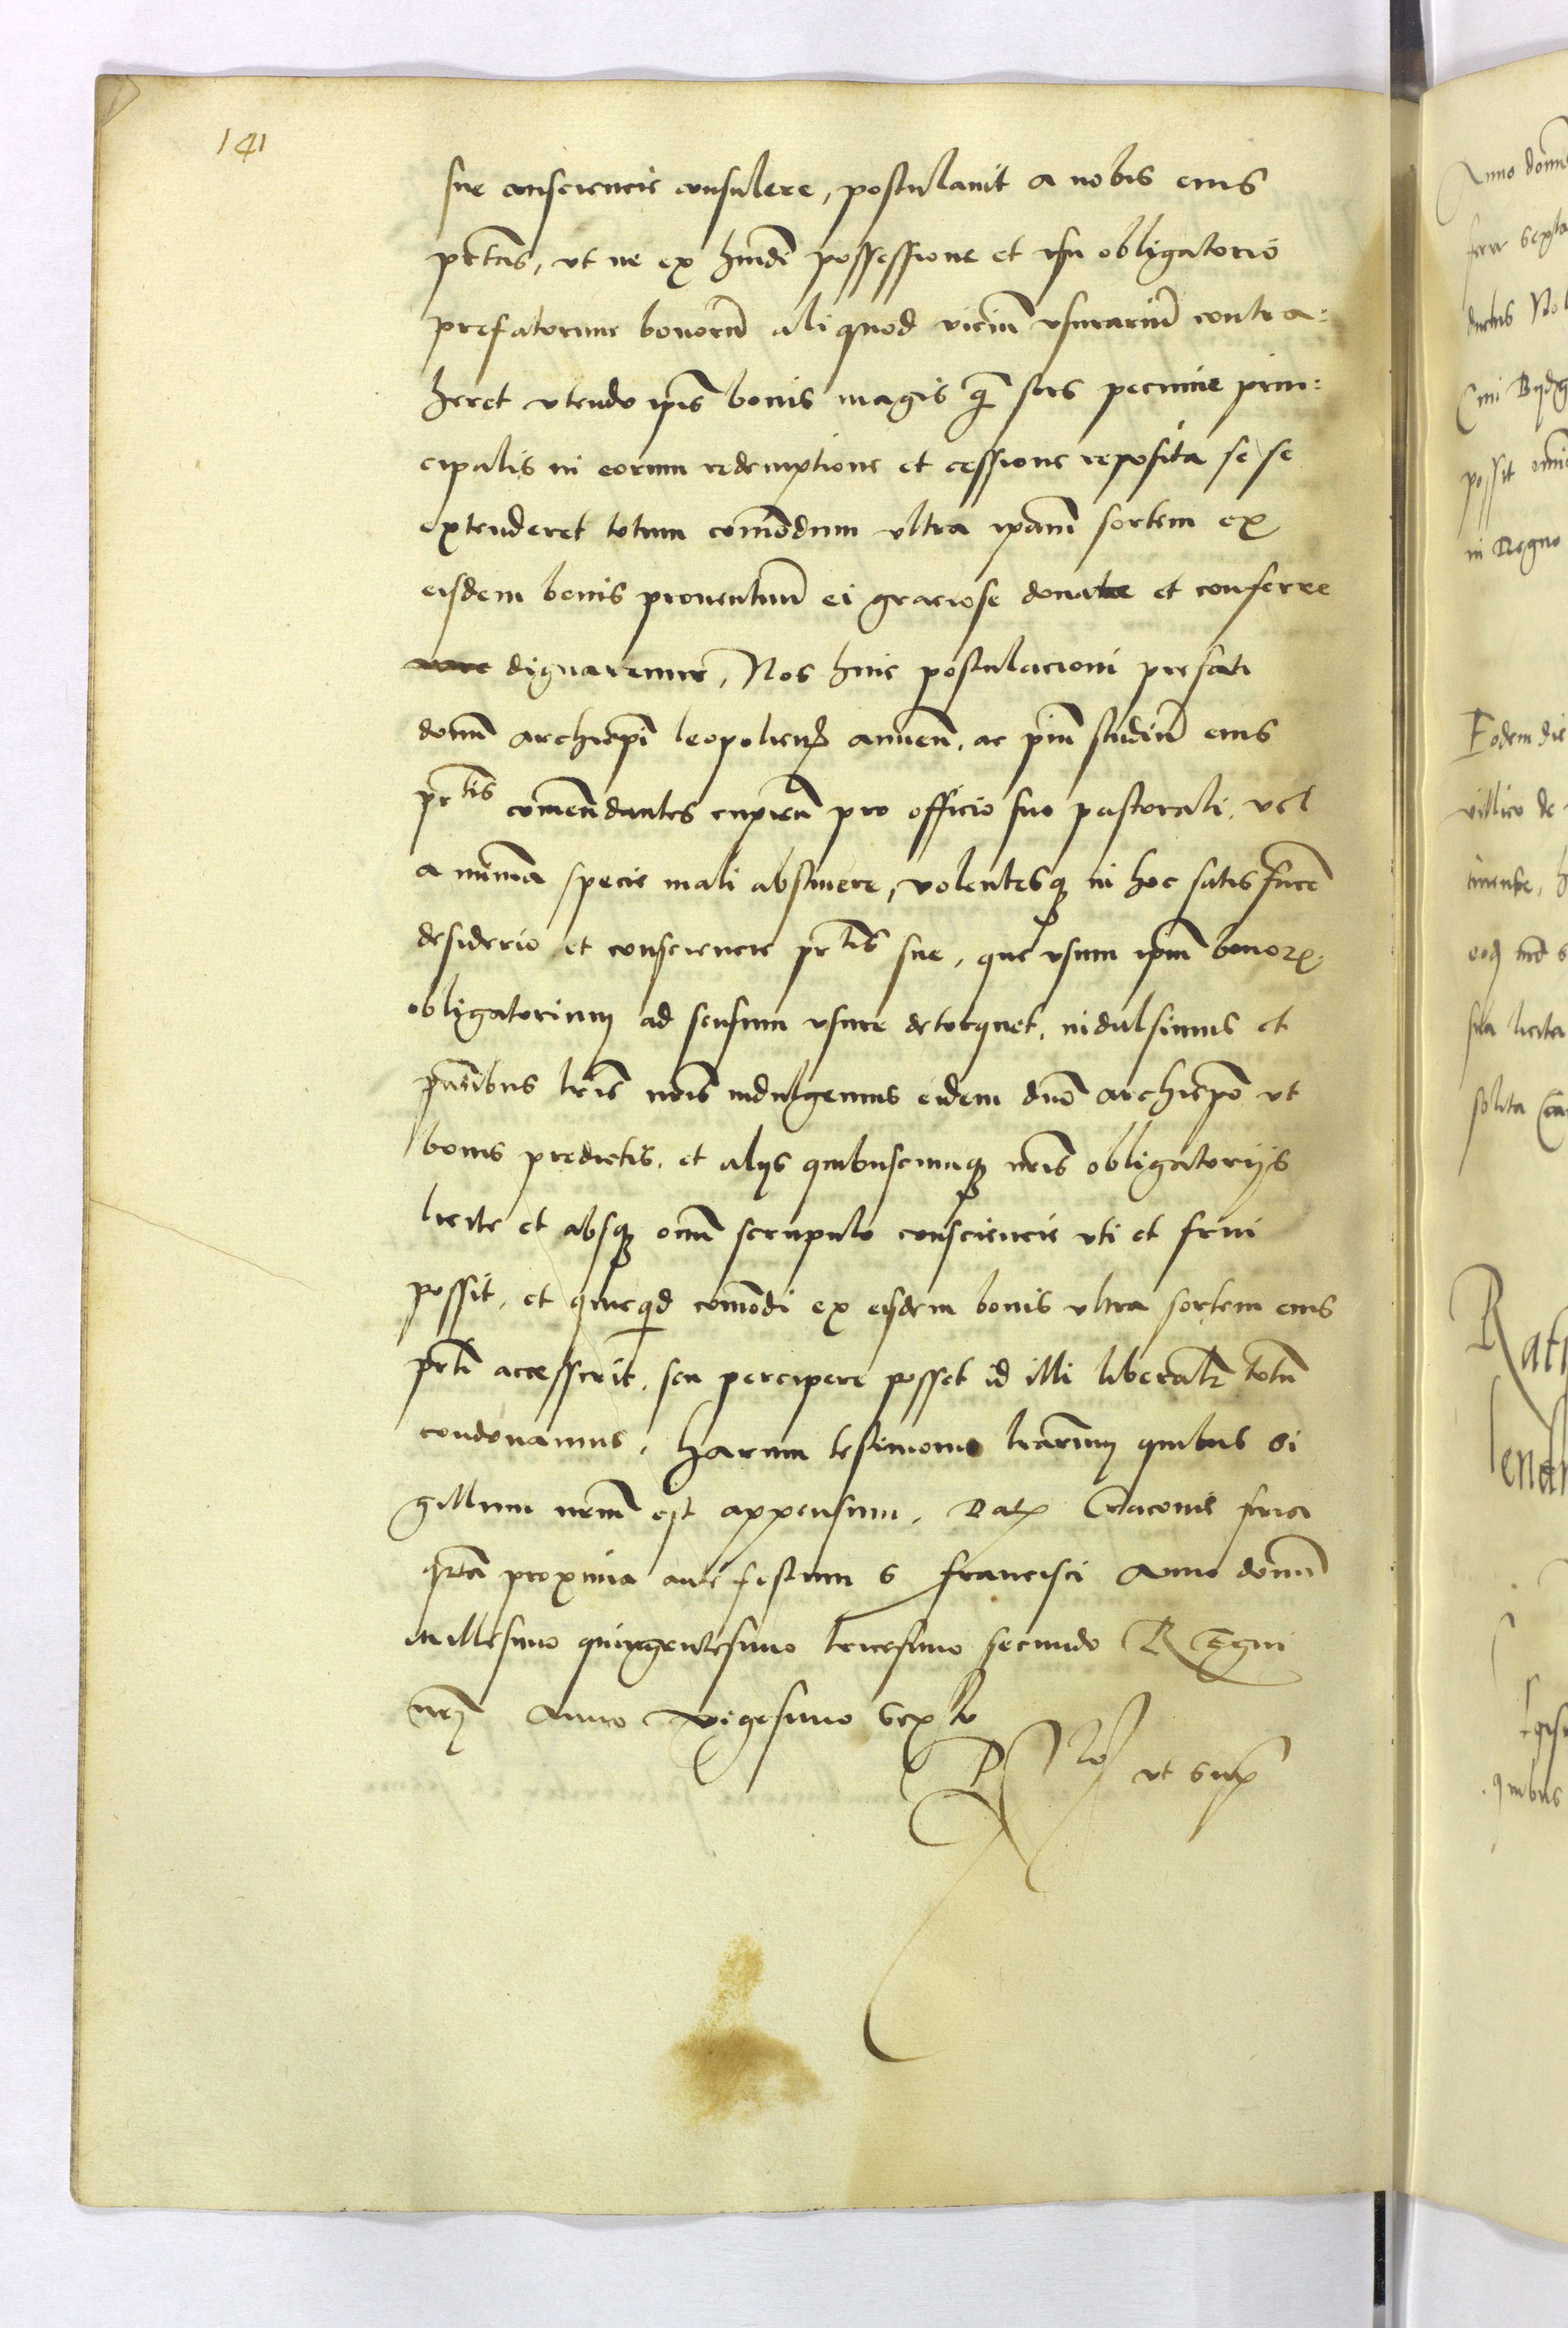 141
sue consciencie consulere, postulavit a nobis eius
pr̃tas, ut ne ex hm̃di possessione et usu obligatorio
prefatorum bonorũ aliquod viciũ usurariũ contra:
heret utendo ip̃is bonis magis q̃ sors pecunie prin:
cipalis in eorum redemptione et cessione reposita se se
extenderet totum com̃odum ultra ip̃am sortem ex
eisdem bonis proventurũ ei graciose donare et conferre
dignaremur, Nos huic postulacioni prefati
domĩ archiep̃i leopolieñ annueñ. ac piũ studiũ eius
pr̃tis com̃endantes cupieñ pro officio suo pastorali, vel
a minima specie mali abstinere, volentesq in hoc satisfacẽ
desiderio et consciencie pr̃tis sue, que usum ip̃m bonoꝝ
obligatorium ad sensum usure detorquet, indulsimus et
p̃ntibus lr̃is nr̃is indulgemus eidem dno archiep̃o ut
bonis predictis, et alijs quibuscumq nr̃is obligatorijs
licite et absq om̃i scrupulo consciencie uti et frui
possit, et quicqd com̃odi ex eisdem bonis ultra sortem eius
pr̃ti accesserit, seu percipere posset id illi liberalr̃ totũ
condonamus, harum testimonio lr̃arum quibus si
gillum nr̃m est appensum. Datꝝ Cracovie feria
qr̃ta proxima ante festum S Francisci Anno domĩ
Millesimo quingentesimo tricesimo secundo Regni
nr̃j Anno vigesimo Sexto
Rlo ut supꝝ
Anno domi
feria Sexta
possit omni
in Regno
Eodem die
villico de
solita
Rat
quibus